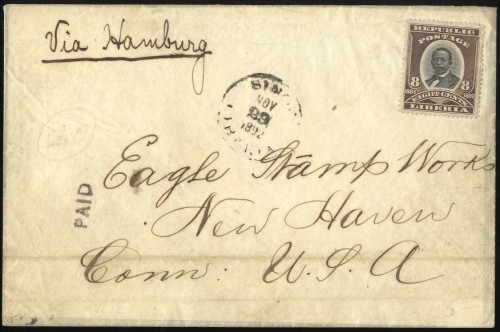 Via Hamburg
REPUBLIC
POSTAGE
8 8
1864 1892
EIGHT CENTS
LIBERIA
NOV
1892
PAID
Eagle Stamp Works
New Haven
Conn. U.S.A